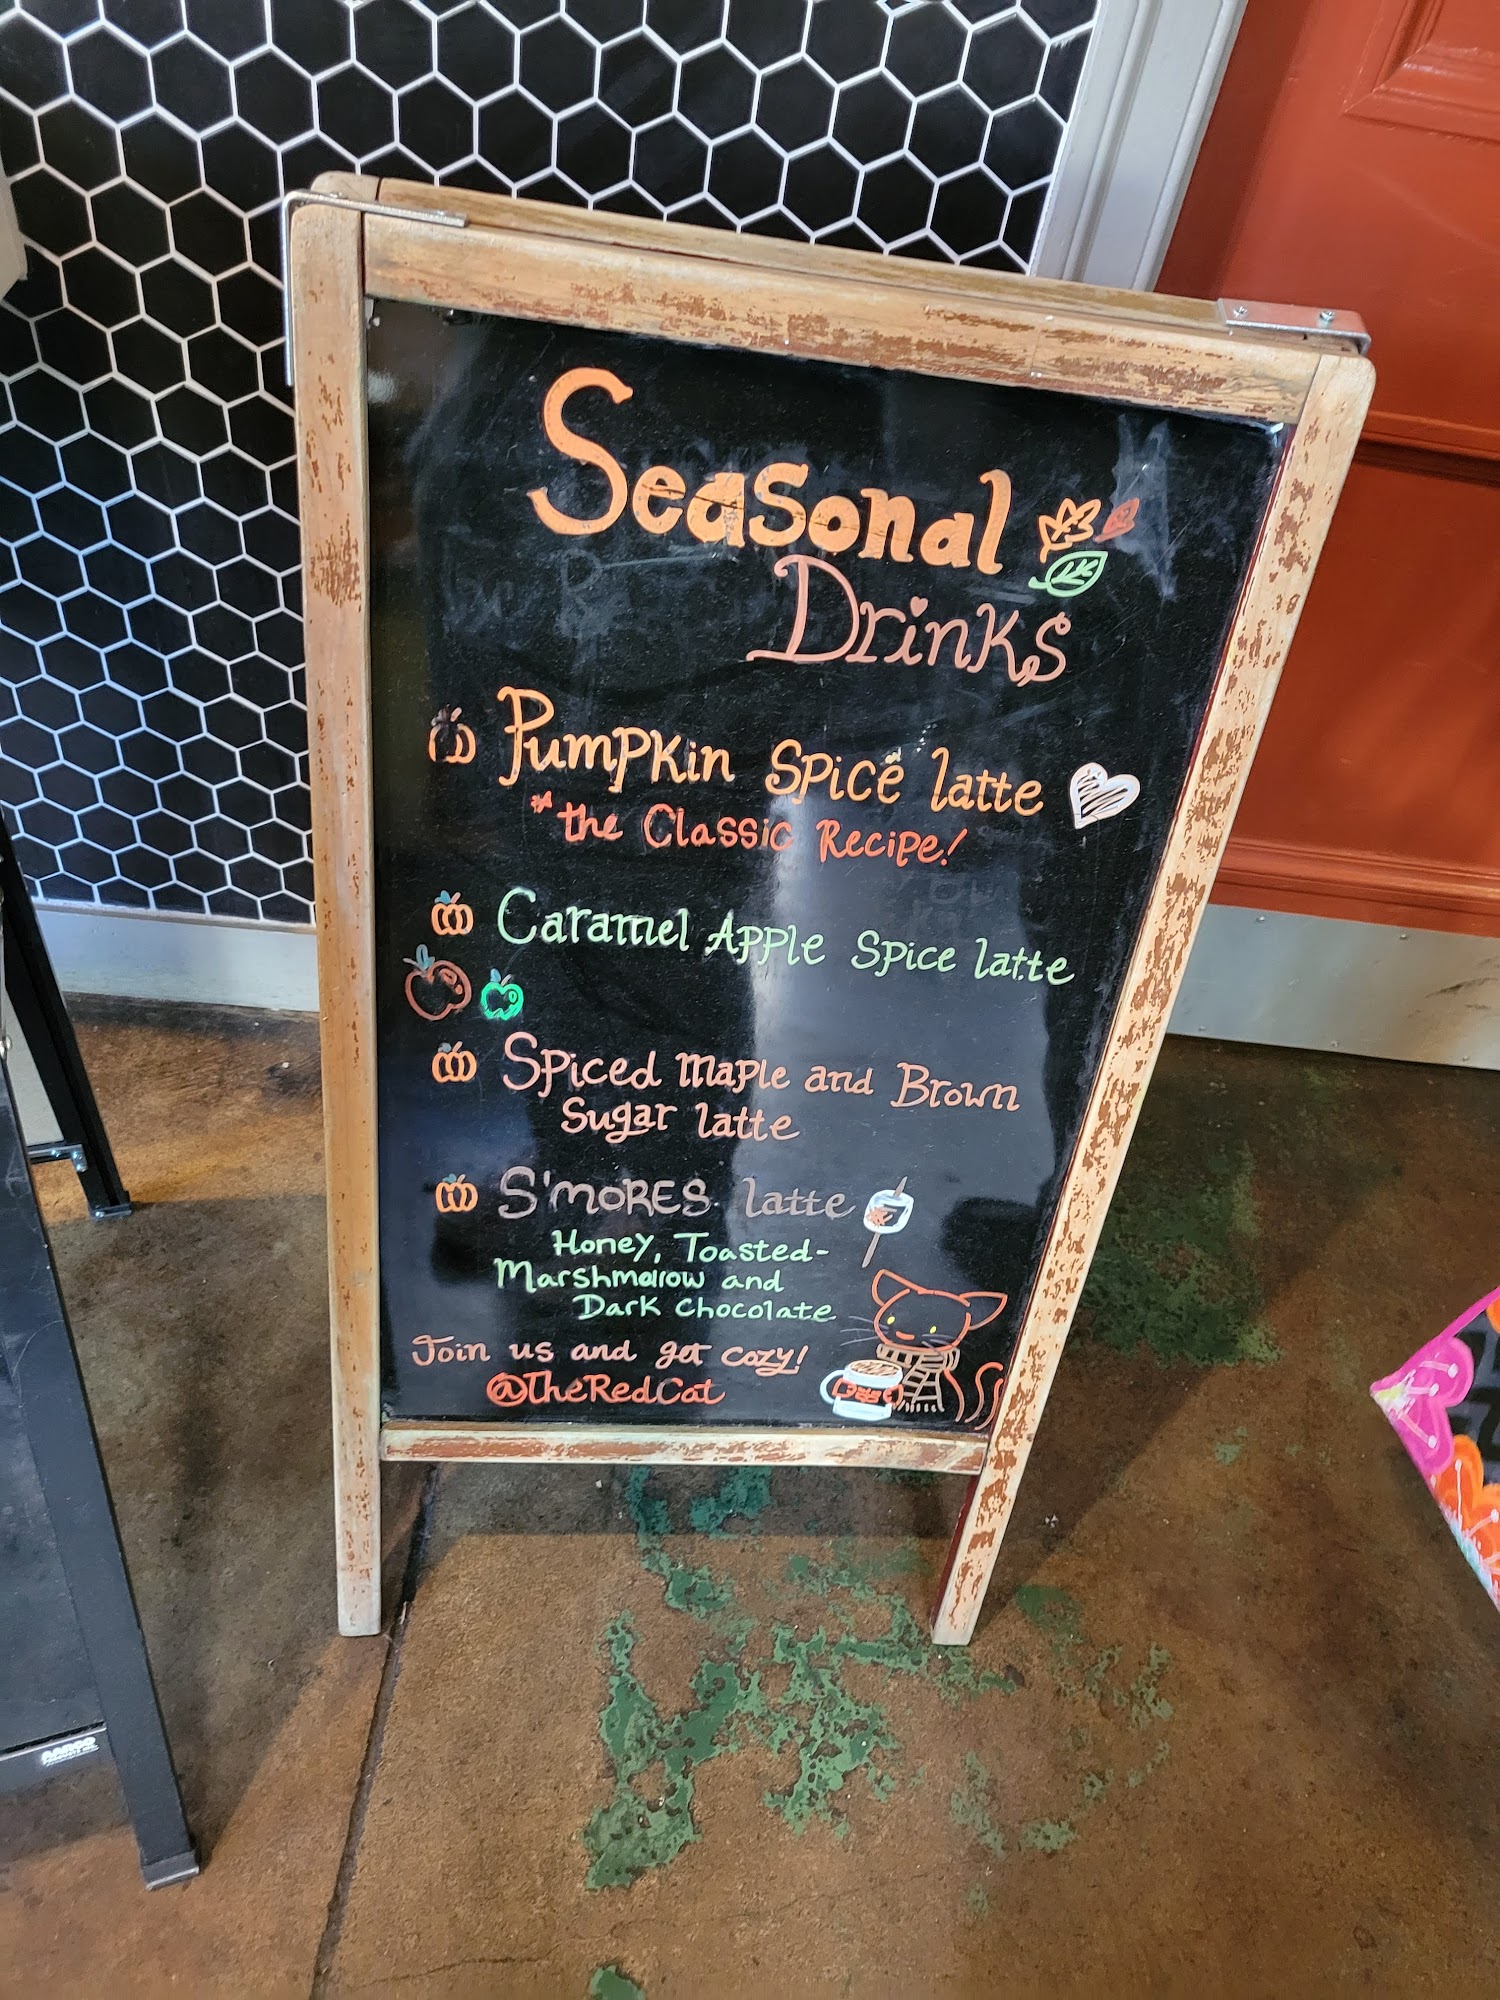 Seasonal
Drinks
Pumpkin Spice latte
*the Classic Recipe!
Caramel Apple Spice latte
Spiced maple and Brown
Sugar latte
S'mORES latte
Honey, Toasted-
Marshmallow and
Dark Chocolate
Join us and get cozy!
@TheRedCat